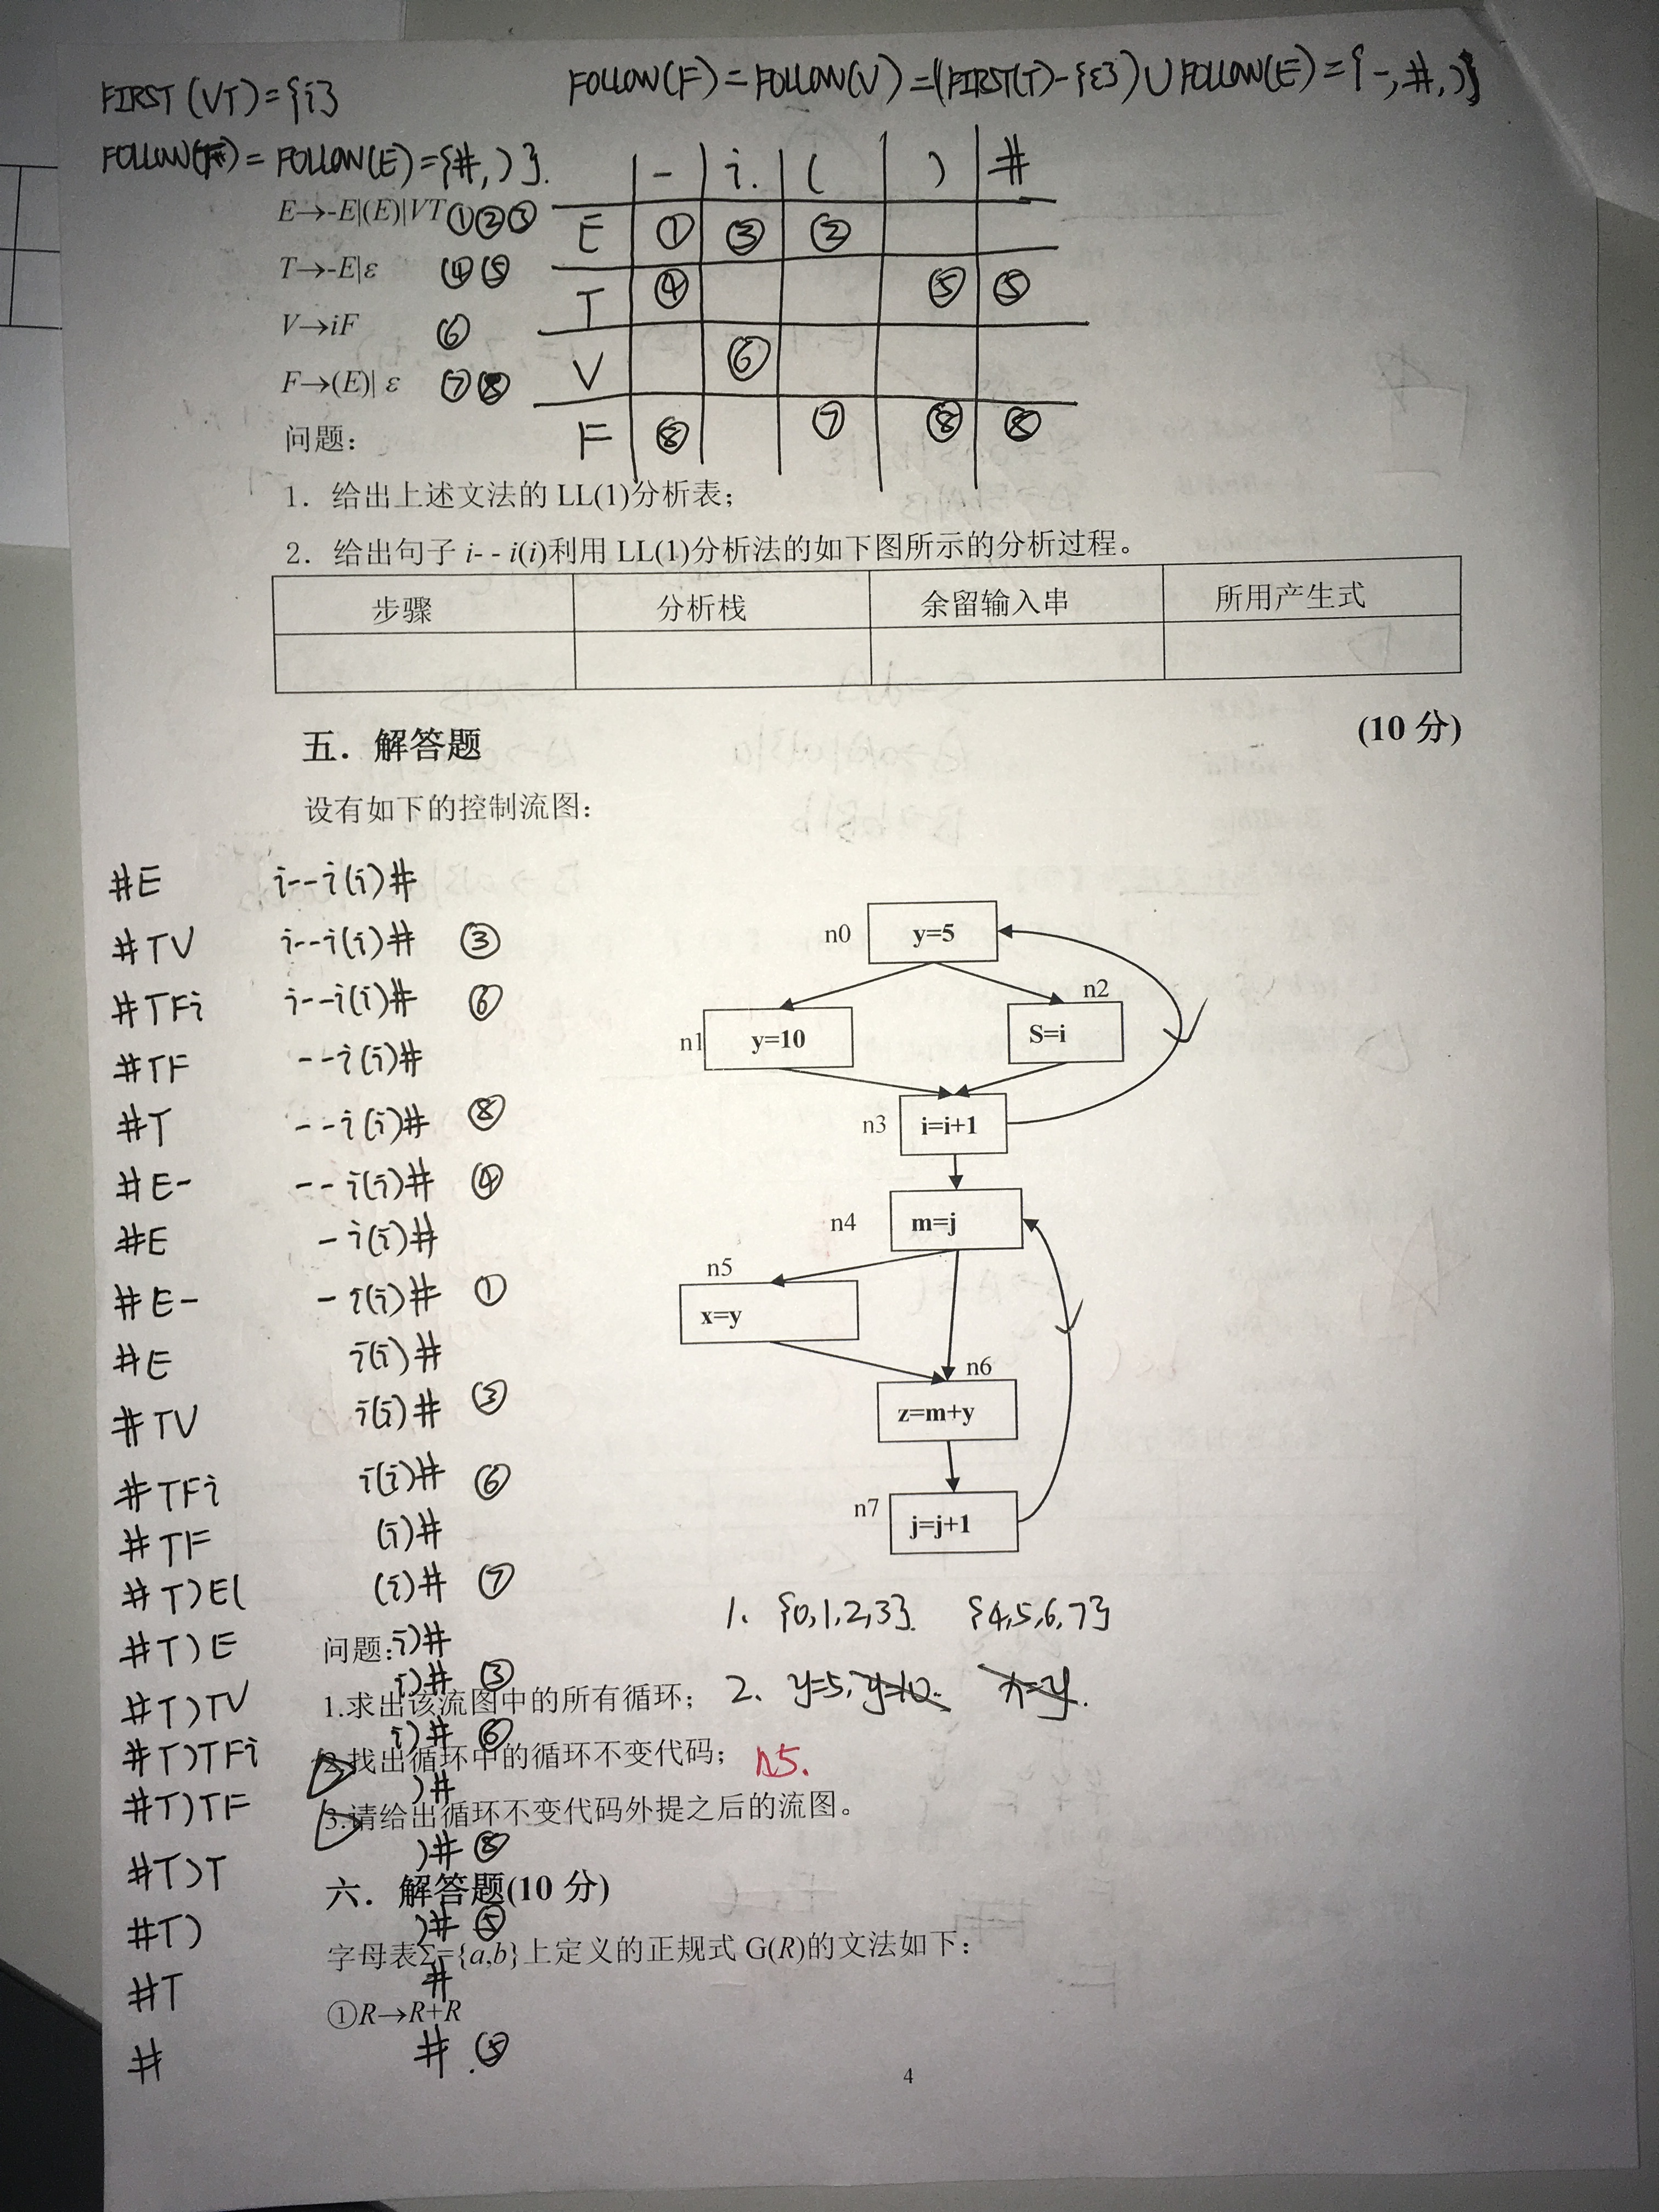 FIRST(VT)={i}
FOLLOW(F)=FOLLOW(V)=(FIRST(T)-{ε})∪FOLLOW(E)={-,#,)}
FOLLOW(T)=FOLLOW(E)={#,)}.
- i. ( ) #
E→-E|(E)|VT ①②③
E ① ③ ②
T→-E|ε ④⑤
T ④ ⑤ ⑤
V→iF ⑥
V ⑥
F→(E)| ε ⑦⑧
F ⑧ ⑦ ⑧ ⑧
问题：
1．给出上述文法的 LL(1)分析表；
2．给出句子 i- - i(i)利用 LL(1)分析法的如下图所示的分析过程。
步骤 分析栈 余留输入串 所用产生式
五．解答题 (10 分)
设有如下的控制流图：
#E i--i(i)#
#TV i--i(i)# ③
#TFi i--i(i)# ⑥
#TF --i(i)#
#T --i(i)# ⑧
#E- --i(i)# ④
#E -i(i)#
#E- -i(i)# ①
#E i(i)#
#TV i(i)# ③
#TFi i(i)# ⑥
#TF (i)#
#T)E( (i)# ⑦
#T)E i)#
#T)TV i)# ③
#T)TFi i)# ⑥
#T)TF )#
#T)T )# ⑧
#T) )# ⑤
#T #
# # ⑤
n0 y=5
n2
n1 y=10 S=i
n3 i=i+1
n4 m=j
n5
x=y
n6
z=m+y
n7 j=j+1
1. {0,1,2,3}. {4,5,6,7}
问题：
1.求出该流图中的所有循环； 2. y=5, y=10. x=y.
2.找出循环中的循环不变代码； n5.
3.请给出循环不变代码外提之后的流图。
六．解答题(10 分)
字母表Σ={a,b}上定义的正规式 G(R)的文法如下：
①R→R+R
4